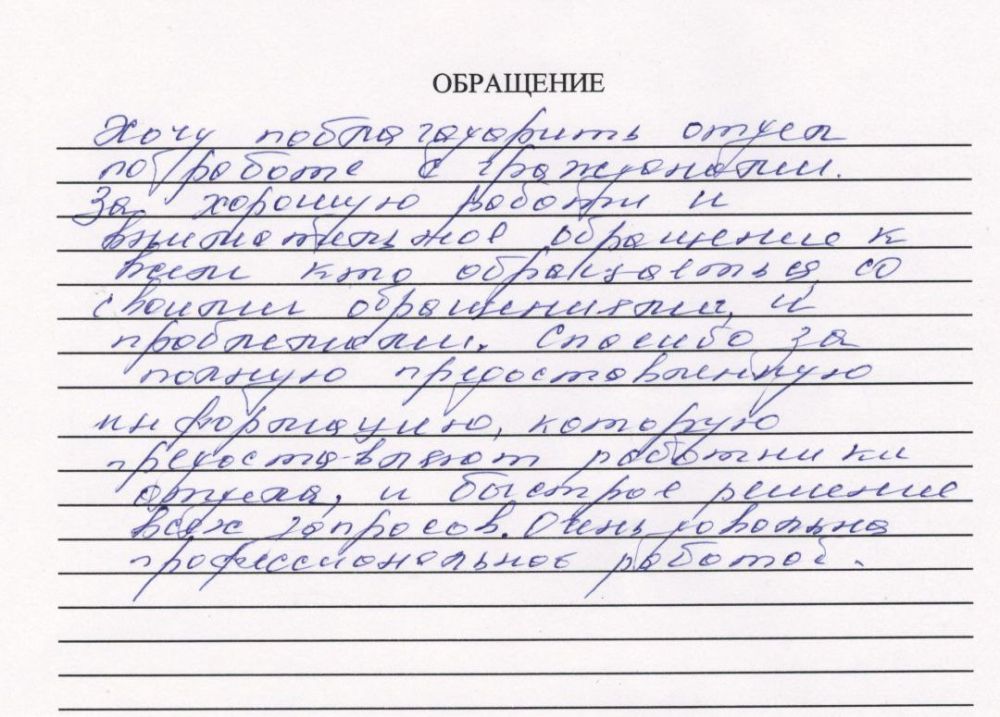 ОБРАЩЕНИЕ
Хочу поблагадарить отдел
по работе с гражданами.
За хорошую работу и
внимательное обращение к
всем кто обращаеться со
своими обращениями, и
проблемами. Спасибо за
полную предоставленную
информацию, которую
предоставляют работники
отдела, и быстрое решение
всех запросов. Очень довольна
профессиональное работой.